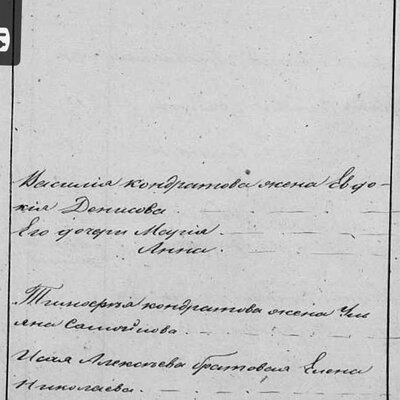 Василія Кондратова жена Евдо-
кія Денисова.
Его дочери Марія.
Анна.
Тимофея Кондратова жена Уль
яна Самойлова.
Исая Алексѣева братовая Елена
Николаева.